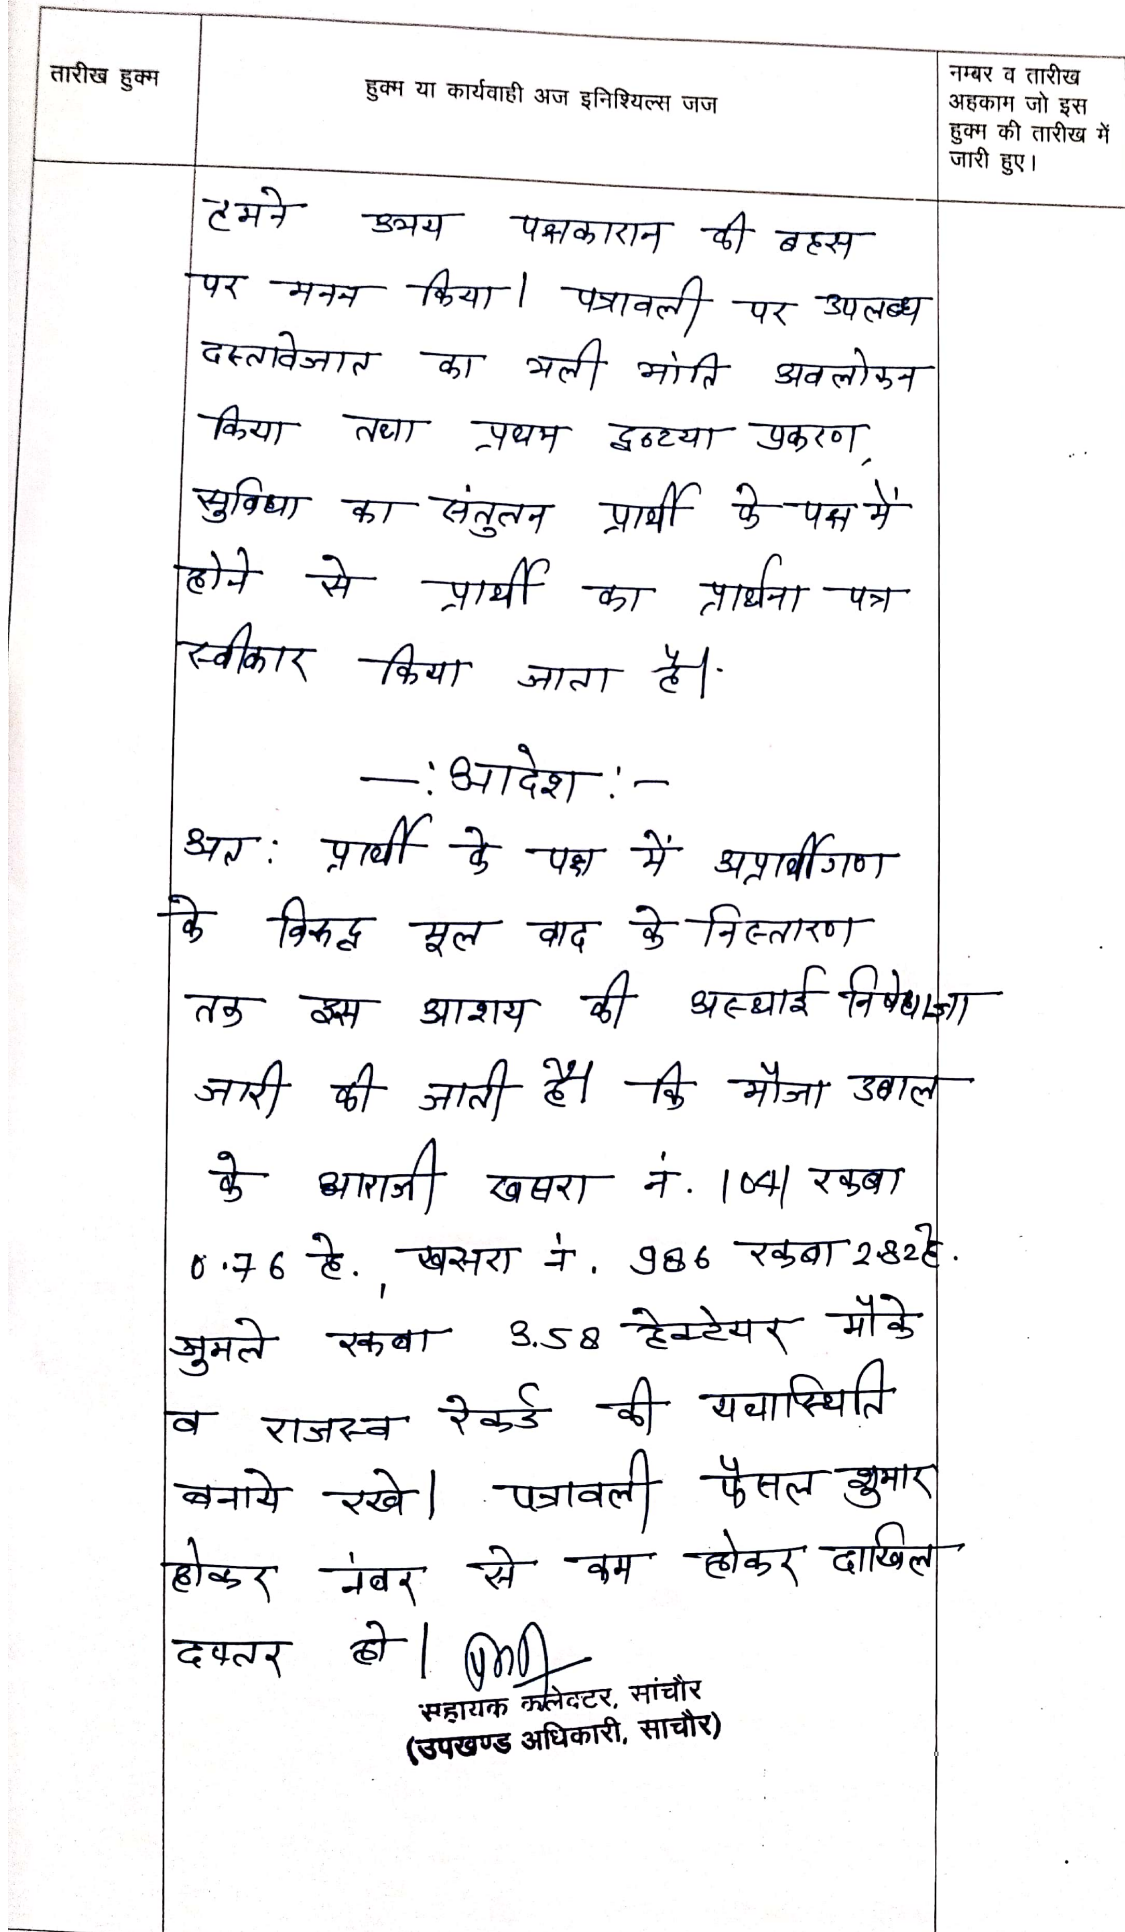 तारीख हुक्म
हुक्म या कार्यवाही अज इनिश्यिल्स जज
नम्बर व तारीख
अहकाम जो इस
हुक्म की तारीख में
जारी हुए।
हमने उभय पक्षकारान की बहस
पर मनन किया। पत्रावली पर उपलब्ध
दस्तावेजात का भली भांति अवलोकन
किया तथा प्रथम दृष्टया प्रकरण,
सुविधा का संतुलन प्रार्थी के पक्ष में
होने से प्रार्थी का प्रार्थना पत्र
स्वीकार किया जाता है।
—: आदेश :—
अतः प्रार्थी के पक्ष में अप्रार्थीगण
के विरुद्ध मूल वाद के निस्तारण
तक इस आशय की अस्थाई निषेधाज्ञा
जारी की जाती है। कि मौजा
के आराजी खसरा नं. 1041 रकबा
0.76 हे., खसरा नं. 986 रकबा 2.82 हे.
जुमले रकबा 3.58 हेक्टेयर मौके
व राजस्व रेकर्ड की यथास्थिति
बनाये रखे। पत्रावली फैसल शुमार
होकर नंबर से कम होकर दाखिल
दफ्तर हो।
सहायक कलेक्टर, सांचौर
(उपखण्ड अधिकारी, साचौर)